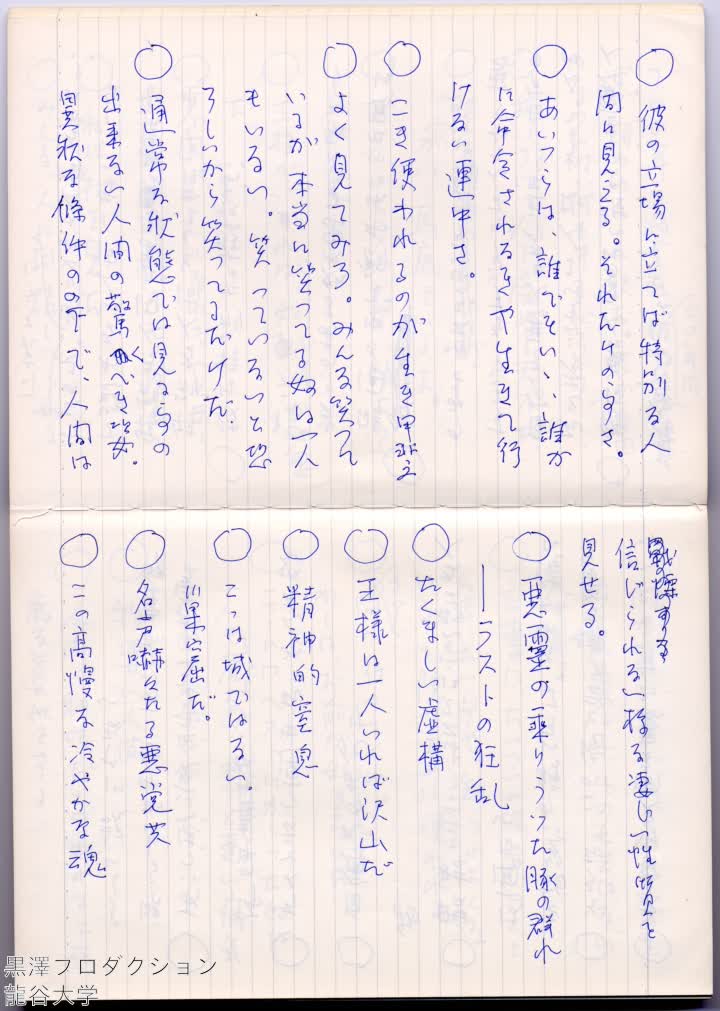 ○ 彼の立場に立てば特別な人
間に見える。それだけの事さ。
○ あいつらは、誰でもいゝ、誰か
に命令されなきや生きて行
けない連中さ。
○ こき使われるのが生き甲斐さ
○ よく見てみろ。みんな笑って
いるが本当に笑ってる奴は一人
もいない。笑っていないと恐
ろしいから笑ってるだけだ。
○ 通常な状態では見る事の
出来ない人間の驚くべき姿。
異状な條件のの下で、人間は
戦慄する
信じられない様な凄じい性質を
見せる。
○ 悪霊の乗りうつた豚の群れ
──ラストの狂乱
○ たくましい虚構
○ 王様は一人いれば沢山だ
○ 精神的窒息
○ こゝは城ではない。
巣窟だ。
○ 名声嚇々たる悪党共
○ この高慢な冷やかな魂
黒澤プロダクション
龍谷大学